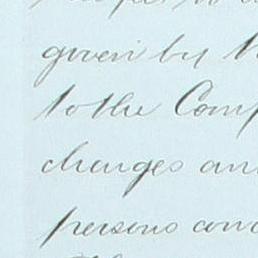 given by
to the Com
changes an
persons con